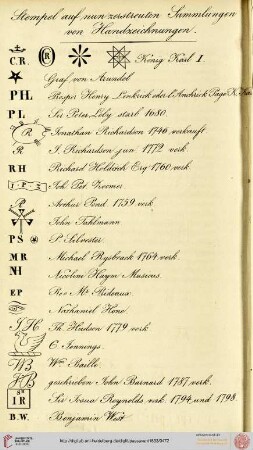 Stempel auf nun zerstreuten Sammlungen
von Handzeichnungen.
C.R. R König Karl I.
Graf von Arundel
PHL Prosper Henry Lankrink oder l'Anchrink Page K. Karl
PL Sir Peter Lely starb 1680.
R Jonathan Richardson 1746 verkauft
R I. Richardson jun 1772 verk.
RH Richard Holditch Esq 1760 verk.
I.P.Z Joh Pet Zoomer
P Arthur Pond 1759 verk.
John Tahlmann
PS P. Silvester.
MR Michael Rysbrack 1764 verk.
NH Nicolini Haym Musicus
EP Rev Mr Pideaux
Nathaniel Hone
TH Th Hudson 1779 verk.
C. Jennings.
WB Wm Baille
JB geschrieben John Barnard 1787 verk.
SIR Sir Josua Reynolds verk. 1794 und 1798.
B.W. Benjamin West